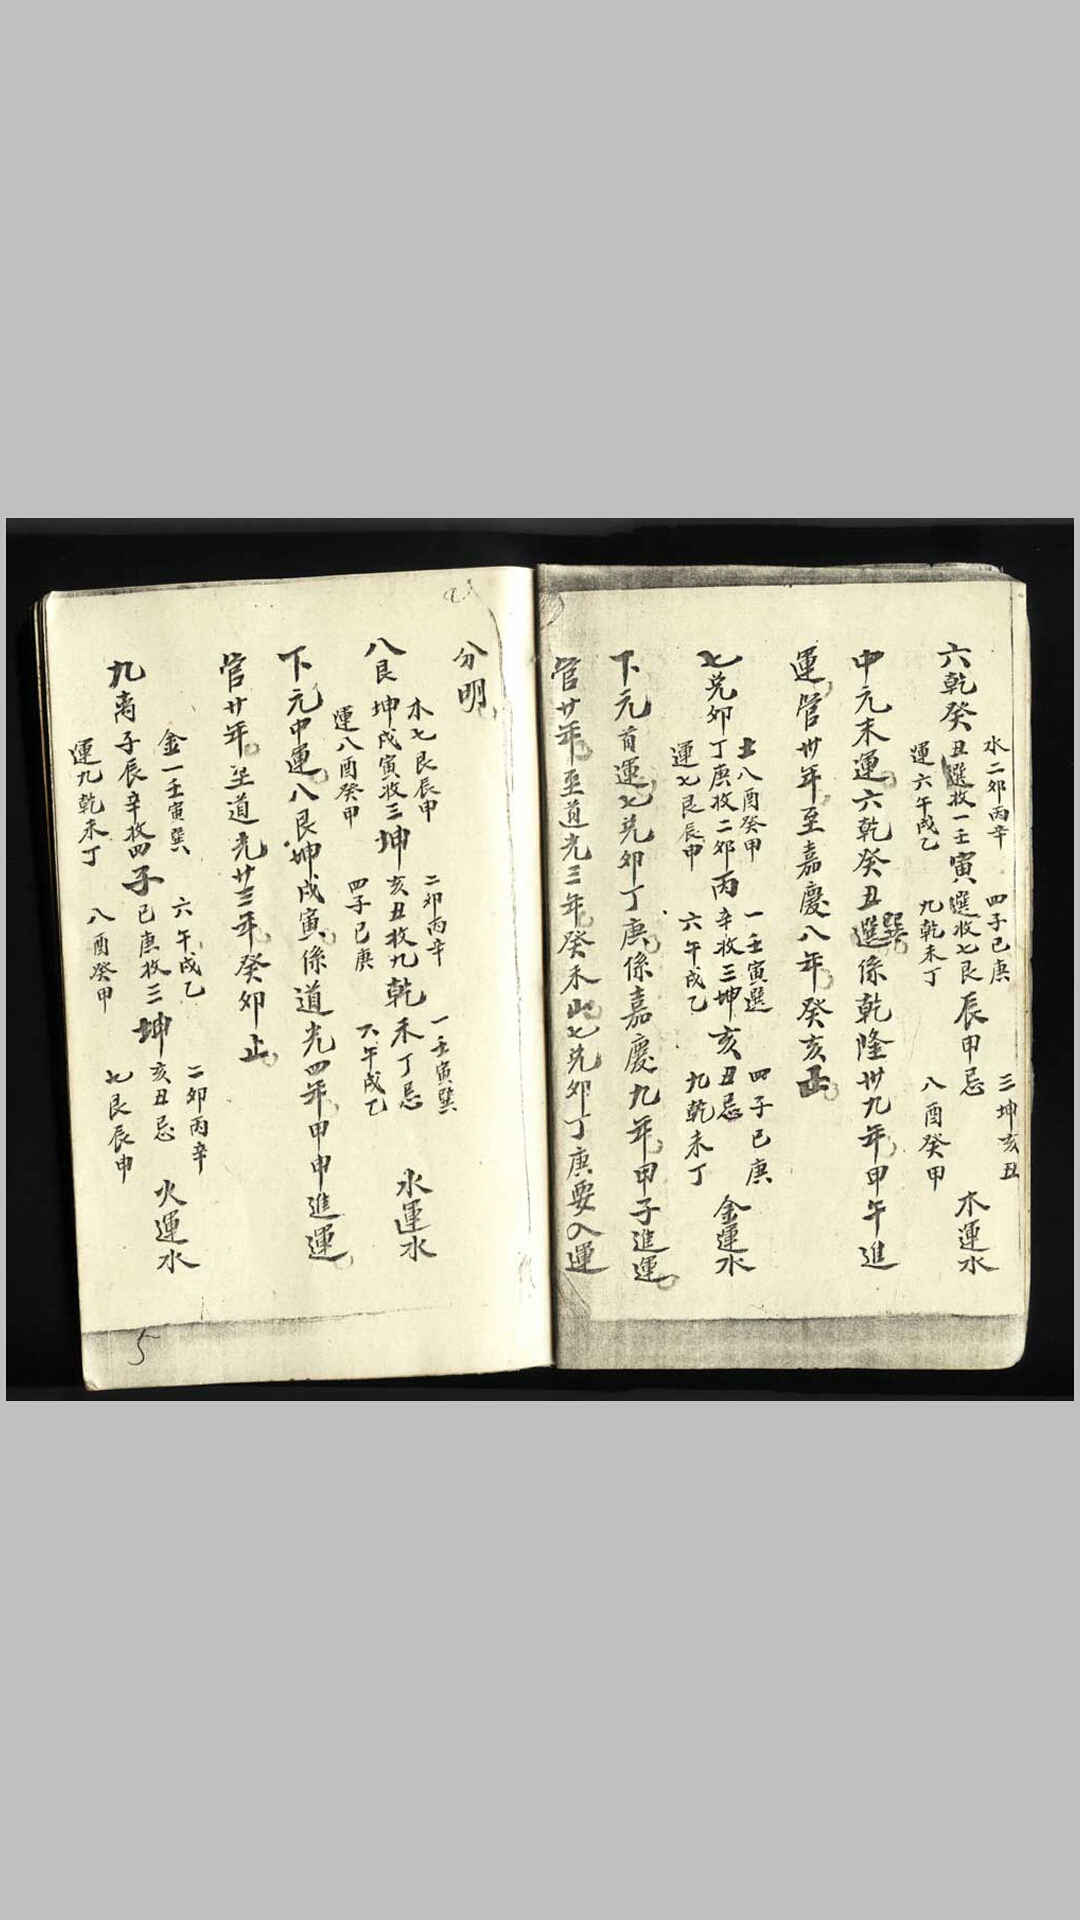 水二卯丙辛 四子巳庚 三坤亥丑
六乾癸丑選收一壬寅選收七艮辰甲忌 木運水
運六午戌乙 九乾未丁 八酉癸甲
中元末運六乾癸丑選巽係乾隆卅九年甲午進
運管卅年至嘉慶八年癸亥止
土八酉癸甲 一壬寅選 四子巳庚
七兑卯丁庚收二卯丙辛收三坤亥丑忌 金運水
運七艮辰申 六午戌乙 九乾未丁
下元首運七兑卯丁庚係嘉慶九年甲子進運
管廿年至道光三年癸未止七兑卯丁庚要入運
分明
木七艮辰申 二卯丙辛 一壬寅巽
八艮坤戌寅收三坤亥丑收九乾未丁忌 水運水
運八酉癸甲 四子巳庚 六午戌乙
下元中運八艮坤戌寅係道光四年甲申進運
管廿年至道光廿三年癸卯止
金一壬寅巽 六午戌乙 二卯丙辛
九离子辰辛收四子巳庚收三坤亥丑忌 火運水
運九乾未丁 八酉癸甲 七艮辰申
5